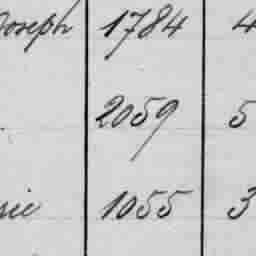 Joseph 1784 4
2059 5
1055 3